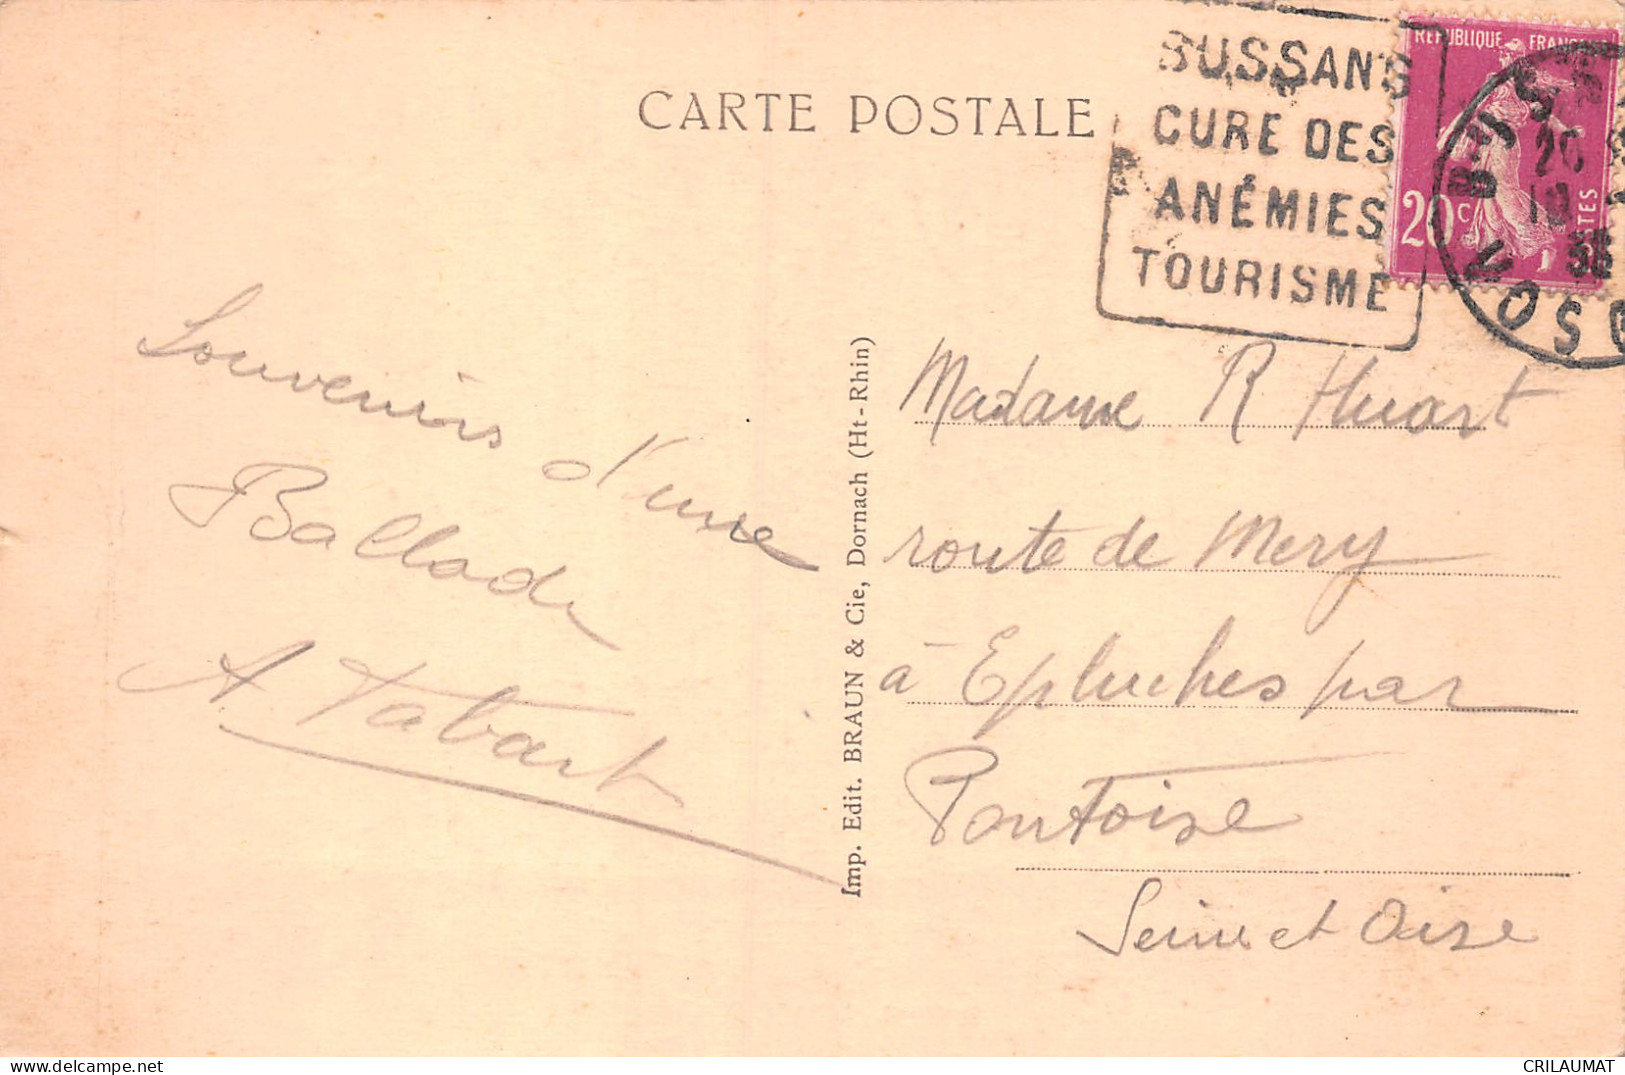 CARTE POSTALE
BUSSANG
CURE DES
ANÉMIES
TOURISME
REPUBLIQUE FRANC
20c
POSTES
BUSS
20
VOSG
Souvenirs d'une
Ballade
A Tabart
Imp. Edit. BRAUN & Cie, Dornach (Ht-Rhin)
Madame R Huart
route de Mery
à Epluches par
Pontoise
Seine et Oise
CRILAUMAT